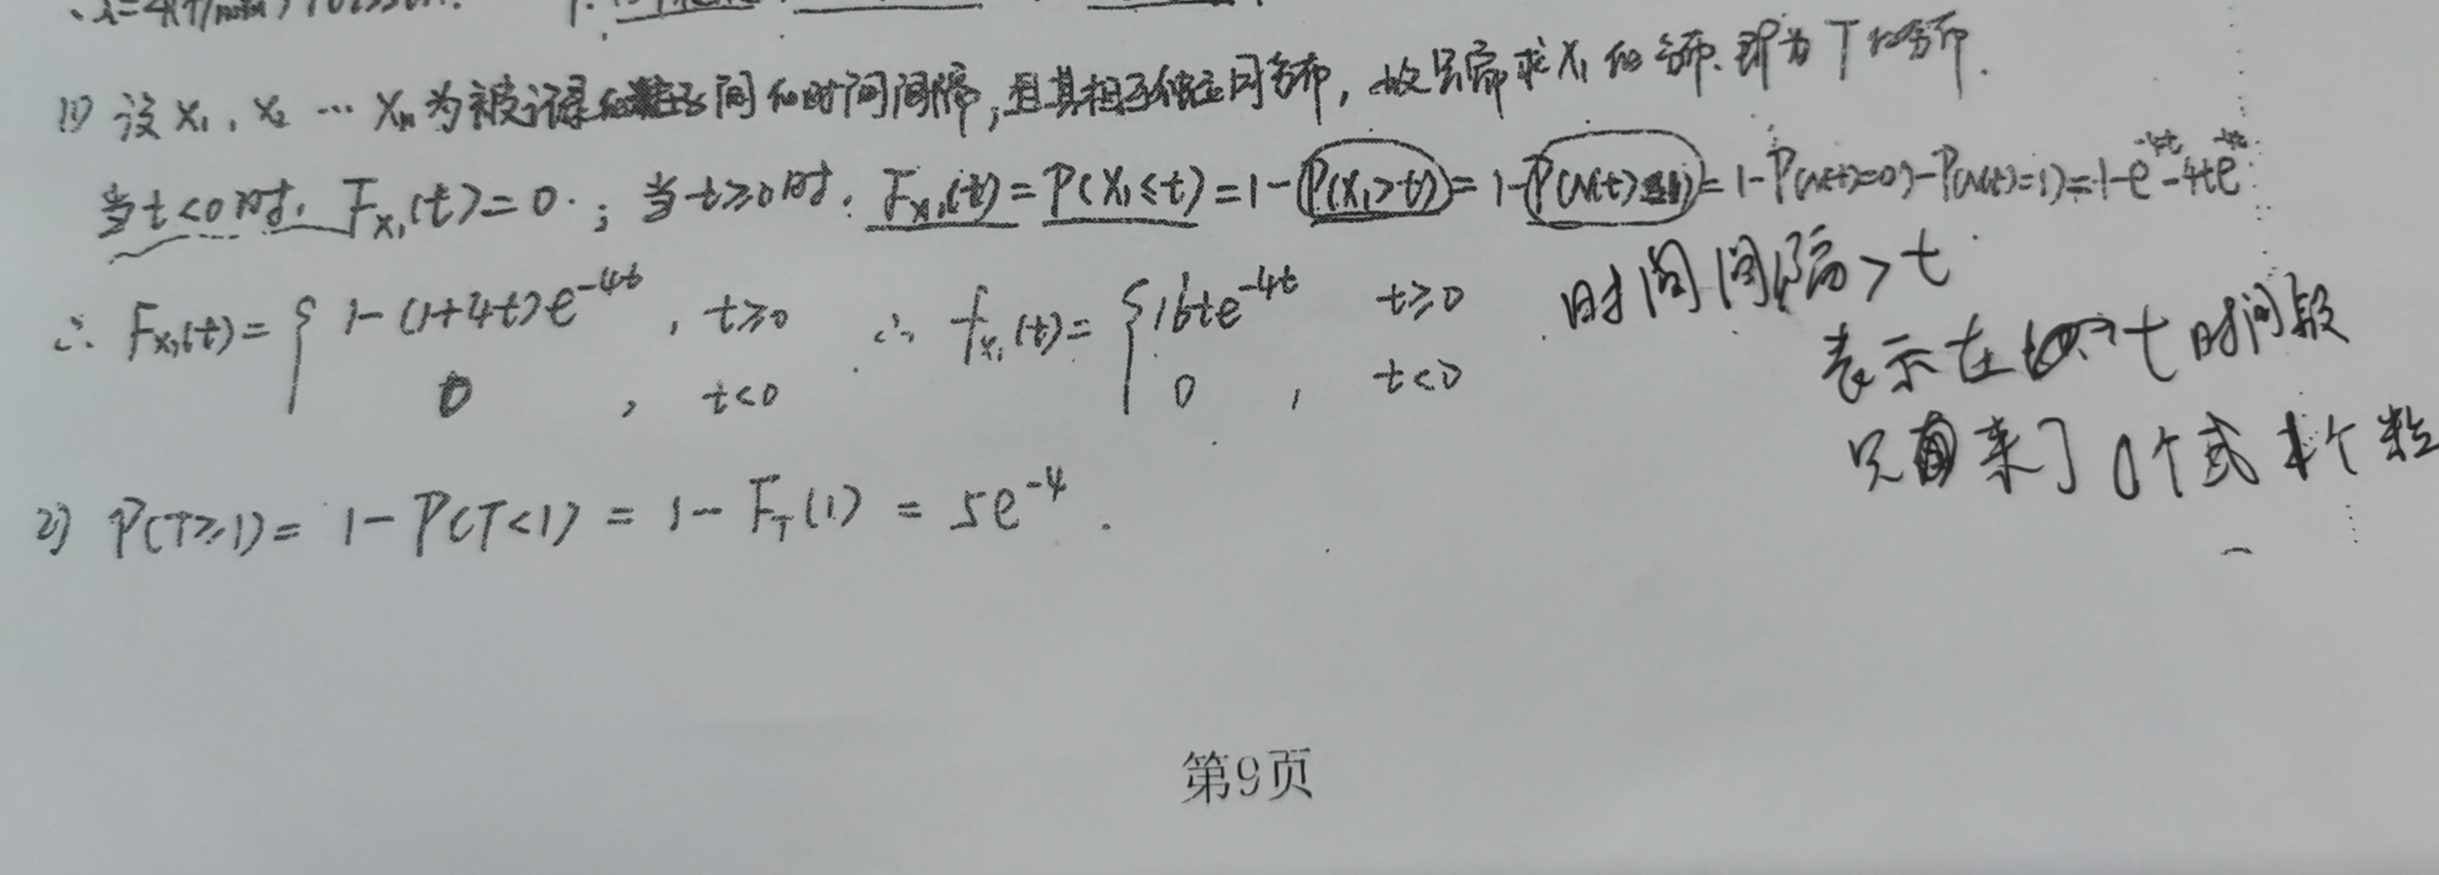 λ=4(个/min)
(1) 设 X₁, X₂ … Xₙ 为被记录的粒子间的时间间隔, 且其相互独立同分布, 故只需求 X₁ 的分布. 即为 T 的分布.
当 t<0 时, F_X₁(t)=0. ; 当 t≥0 时. F_X₁(t) = P(X₁≤t) = 1-P(X₁>t) = 1-P(N(t)≤1) = 1-P(N(t)=0)-P(N(t)=1) = 1-e^{-4t}-4te^{-4t}
∴ F_X₁(t)= { 1-(1+4t)e^{-4t}, t≥0 ∴ f_X₁(t)= { 16te^{-4t} t≥0
0 , t<0 0 , t<0
时间间隔>t
表示在 t 时间段
只 来了 0个或 1个 粒
2) P(T≥1)= 1-P(T<1) = 1-F_T(1) = 5e^{-4} .
第9页